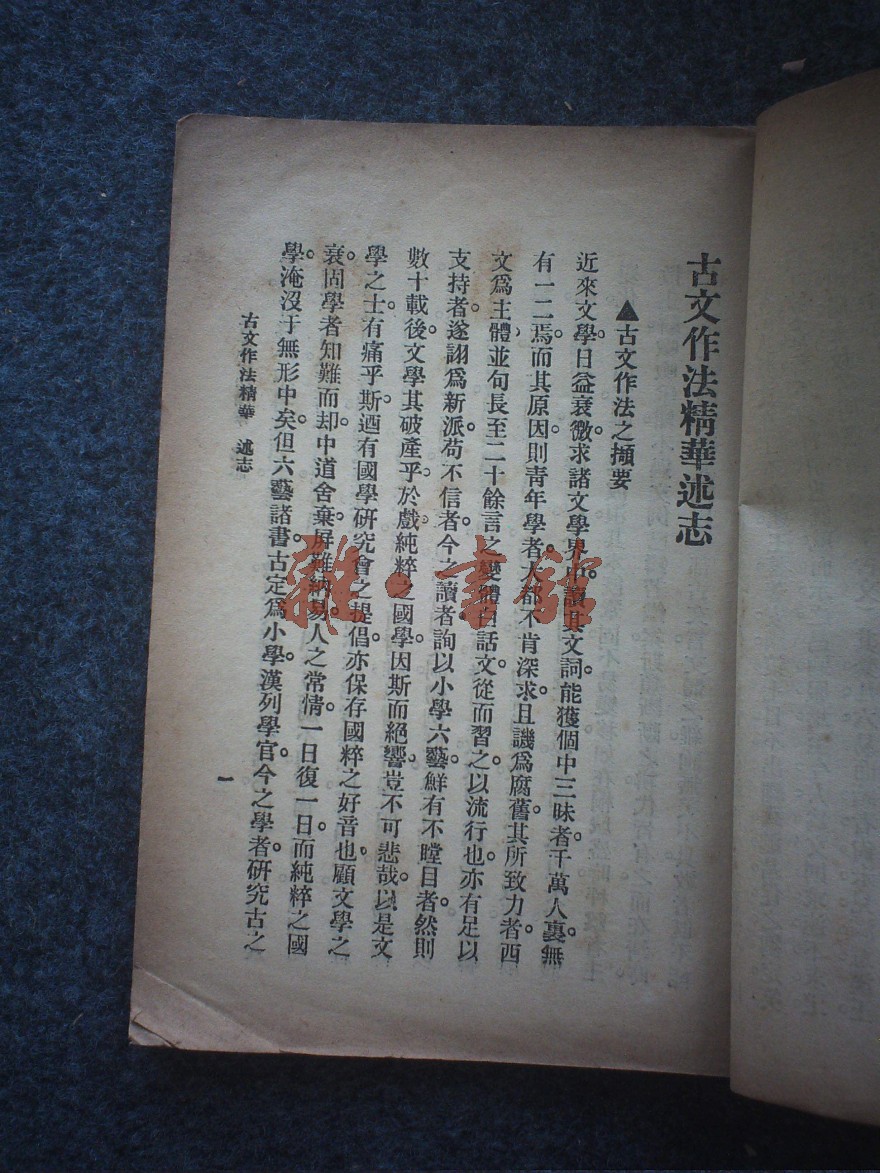 古文作法精華述志
▲古文作法之擷要
近來文學日益衰微。求諸文學界中。讀其文詞。能獲個中三昧者。千萬人裏。無
有一二焉。而其原因。則青年學者。大都不肯深求。且譏爲腐舊。其所致力者。西
文爲主體。並句長至二十餘言之變體白話文。從而習之。以流行也。亦有足以
支持者。遂詡爲新派。苟不信者。今之讀者。詢以小學六藝。鮮有不瞠目者。然則
數十載後。文學其破產乎。於戲。純粹之國學。因斯而絕響。豈不可悲哉。以是文
學之士。有痛乎斯。迺有國學研究會之提倡。亦保存國粹之好音也。顧文學之
衰。固學者知難而却。中道舍棄。屏難納易。人之常情。一日復一日。而純粹之國
學。淹沒于無形中矣。但六藝諸書。古定爲小學。漢列學官。今之學者。研究古之
古文作法精華　述志
一
雜·書館